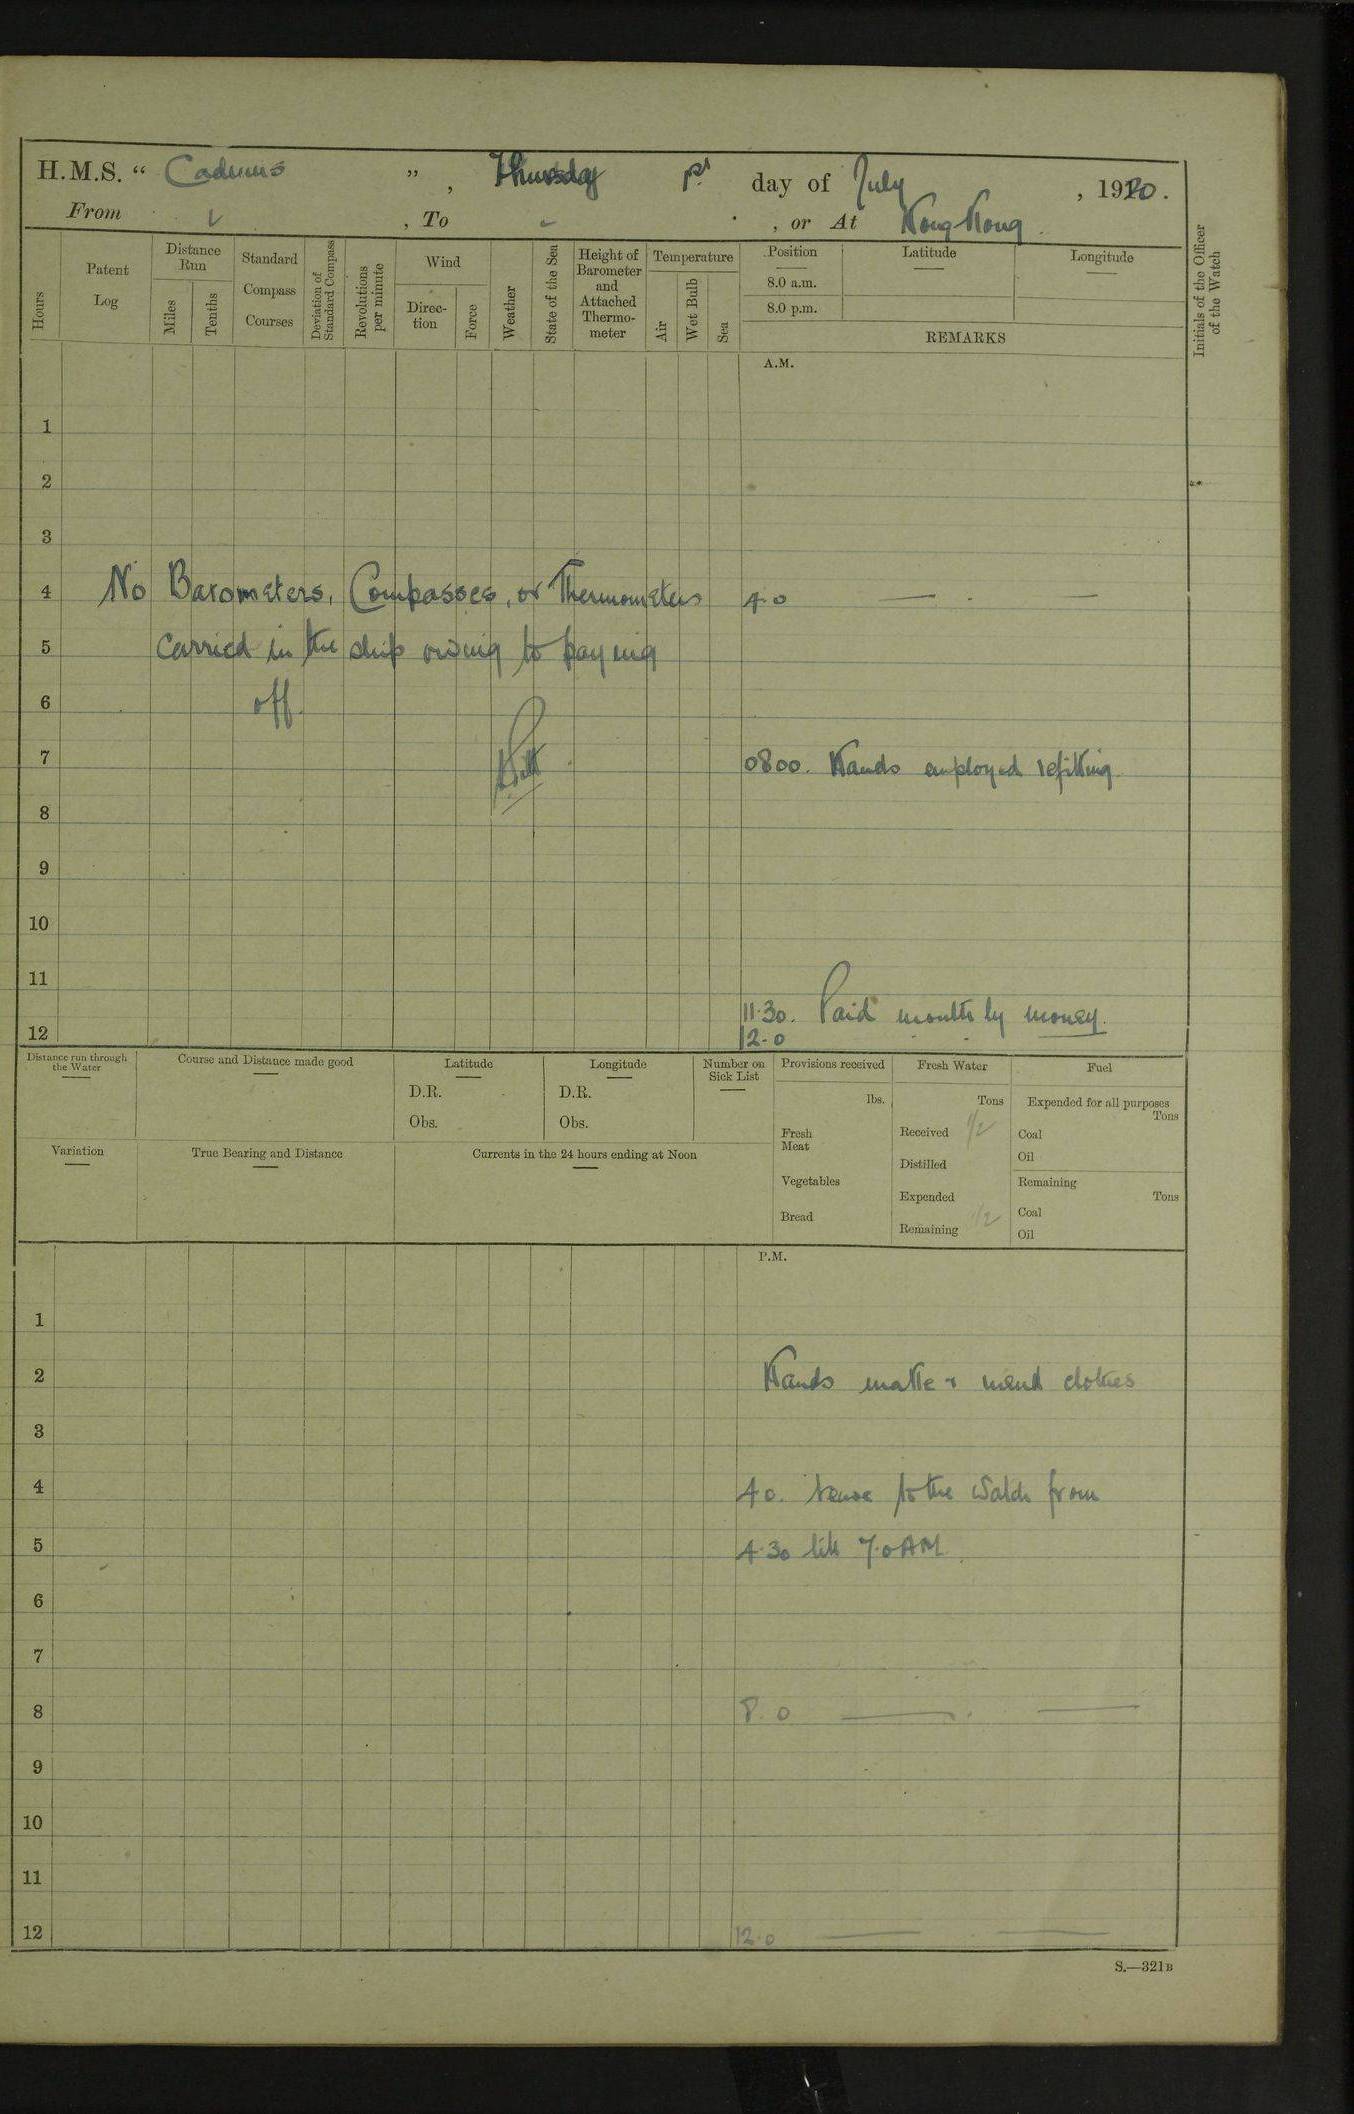 H.M.S. “ Cadmus ” , Thursday 1st day of July , 1920.
From , To , or At Hong Kong
Hours
Patent Log
Distance Run
Miles
Tenths
Standard Compass Courses
Deviation of Standard Compass
Revolutions per minute
Wind
Direc-tion
Force
Weather
State of the Sea
Height of Barometer and Attached Thermo-meter
Temperature
Air
Wet Bulb
Sea
Position
8.0 a.m.
8.0 p.m.
Latitude
Longitude
REMARKS
Initials of the Officer of the Watch
A.M.
1
2
3
4 No Barometers, Compasses, or Thermometers 4.0 — . —
5 carried in the ship owing to paying
6 off.
7 0800. Hands employed refitting.
8
9
10
11
11.30. Paid monthly money.
12 12.0
Distance run through the Water
Course and Distance made good
Latitude
D.R.
Obs.
Longitude
D.R.
Obs.
Number on Sick List
Variation
True Bearing and Distance
Currents in the 24 hours ending at Noon
Provisions received
lbs.
Fresh Meat
Vegetables
Bread
Fresh Water
Tons
Received 1/2
Distilled
Expended
Remaining 1/2
Fuel
Expended for all purposes
Tons
Coal
Oil
Remaining
Tons
Coal
Oil
P.M.
1
2 Hands make & mend clothes
3
4 4.0. Leave to the Watch from
5 4.30 till 7.0 AM.
6
7
8 8.0 — . —
9
10
11
12 12.0 — —
S.—321B